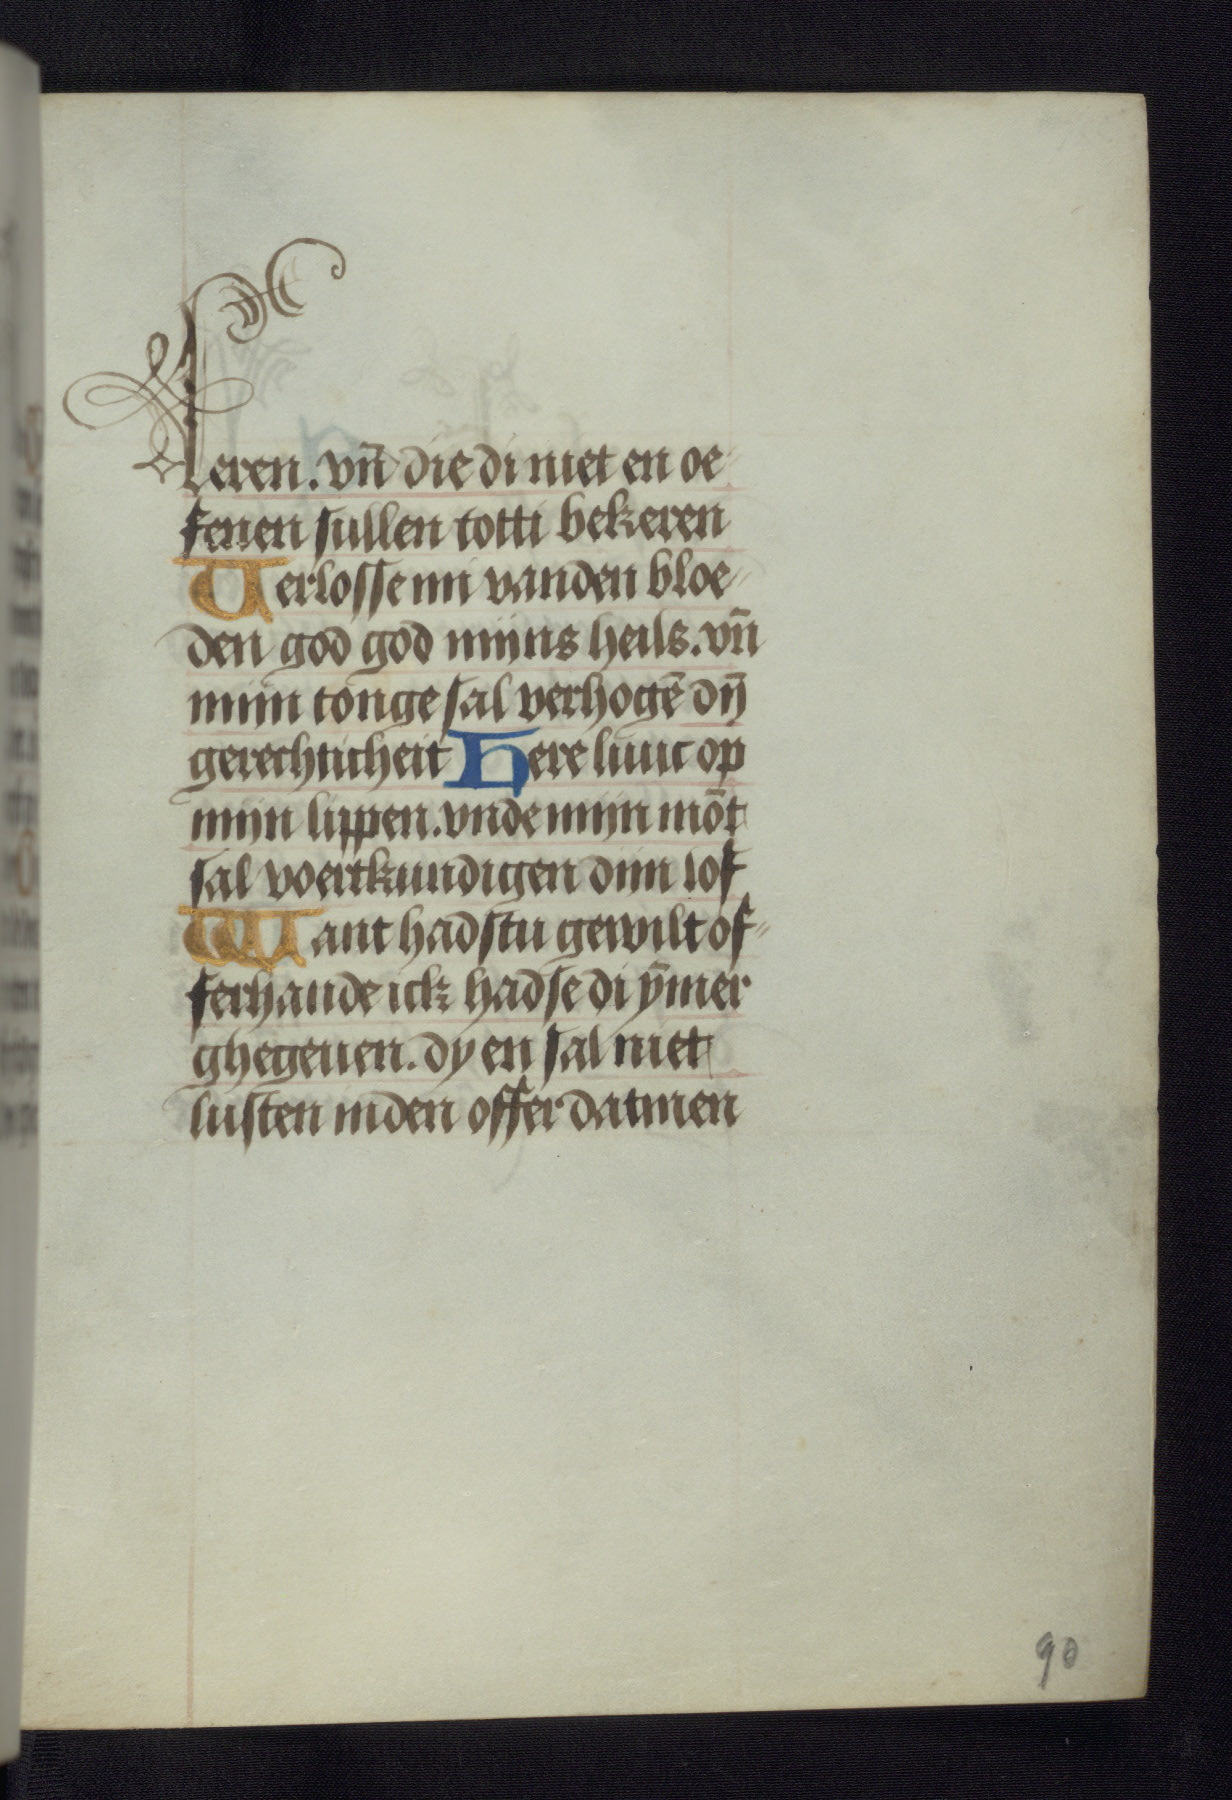 leren. vn̄ die di niet en oe
fenen sullen totti bekeren
Verlosse mi vanden bloe⸗
den god god mijns heils. vn̄
mijn tonge sal verhogē dijn̄
gerechticheit Here luuc op
mijn lippen. vnde mijn mōt
sal voertkundigen dijn lof
Want hadstu gewilt of⸗
ferhande ick hadse di ȳmer
ghegeuen. dy en sal niet
lusten inden offer datmen
90